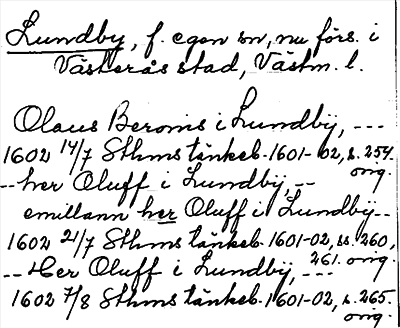 Lundby, f. egen sn, nu förs. i
Västerås stad, Västm. l.
Olaus Beronis i Lundbÿ, ---
1602 14/7 Sthms tänkeb. 1601-02, s. 254.
orig.
--her Oluff i Lundbÿ, --
emillann her Oluff i Lundbÿ--
1602 21/7 Sthms tänkeb. 1601-02, ss. 260,
261. orig.
--Her Oluff i Lundbÿ, ---
1602 7/8 Sthms tänkeb. 1601-02, s. 265.
orig.